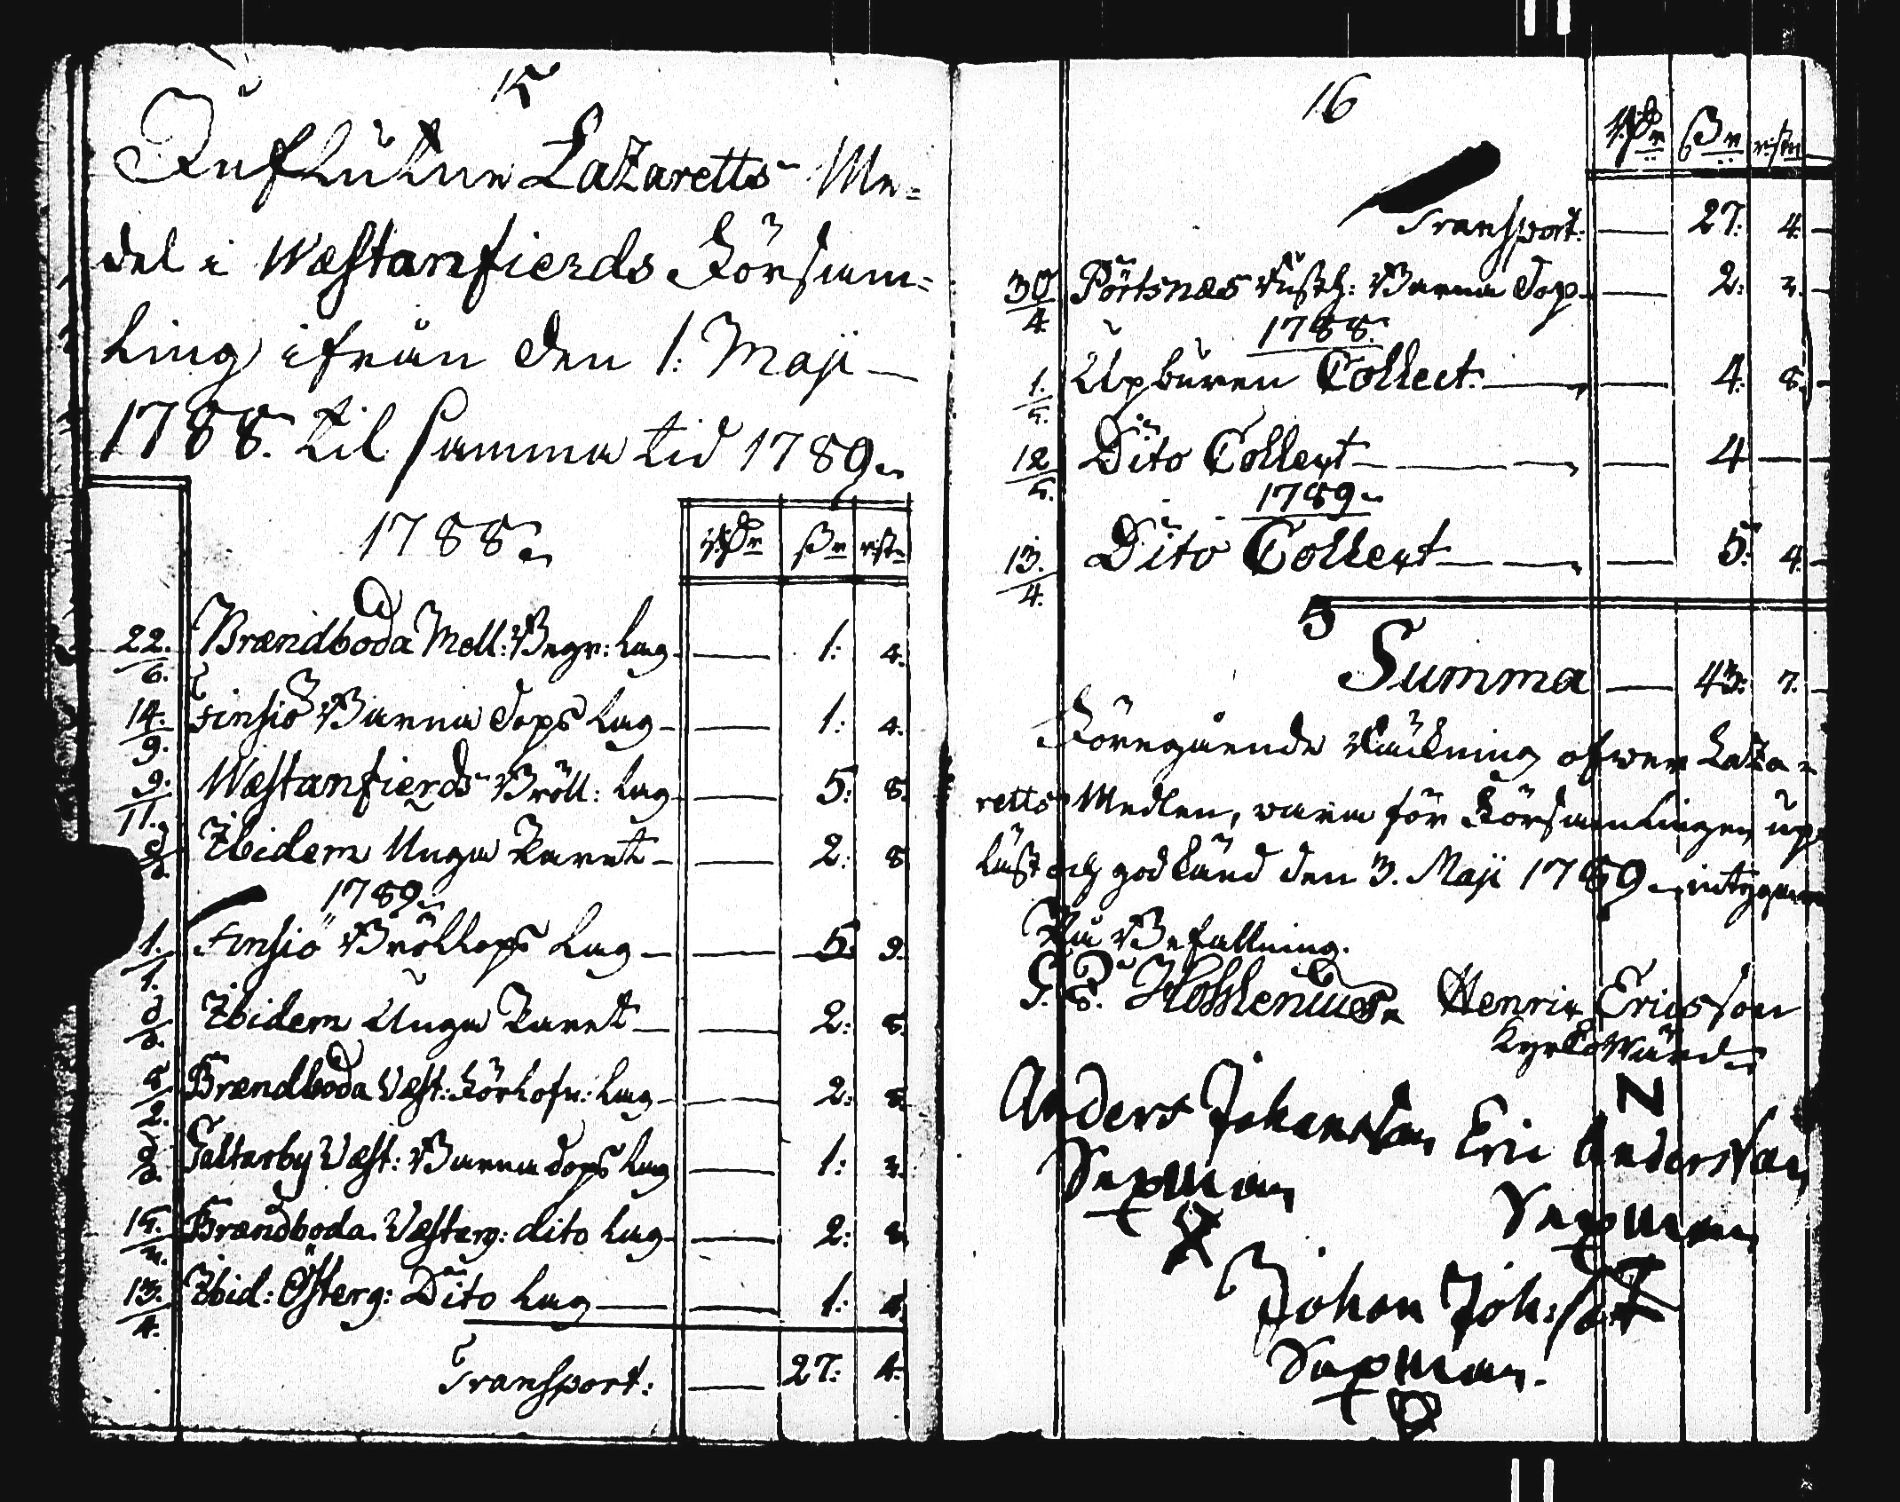 15
Influtne Lazaretts Me=
del i Wæstanfierds Försam=
ling ifrån den 1. Maji
1788. til samma tid 1789.
1788. Rdr ßr rst:
22/6. Brændboda Mell: Begr: lag — 1: 4.
14/9. Finsiö Barna dops lag — 1: 4.
9/11. Wæstanfierds Bröll: lag — 5: 8.
d/o Ibidem Unga Paret — 2: 8
1789.
1/1. Finsiö Bröllops lag — 5: 9.
d/o Ibidem Unga Paret — 2: 8.
5/2. Brændboda Væst: Förlofn: lag — 2: 8.
d/o Galtarby Væst: Barna dops lag — 1: 2.
15/3. Brændboda Væsterg: dito lag — 2: 8.
13/4. Ibid: Österg: Dito lag — 1: 4.
Transport: — 27: 4.
16
Rdr ßr rstr
Transport: — 27: 4.
30/4 Pörtsnæs Rusth: Barna Dop — 2: 3.
1788.
1/5. Upburen Collect: — 4: 8.
12/5. Dito Collect — 4 —
1789.
13/4. Dito Collect — 5: 4.
Summa — 43: 7.
Föregående Räkning öfwer Laza=
retts Medlen, vara för Församlingen up
läst och godkänd den 3. Maji 1789. intygar
På Befallning.
Henrik Ericsson
Kyrkowärd
Anders Johansson Eric Andersson
Sexman
Sexman
Johan Johsson
Sexman.